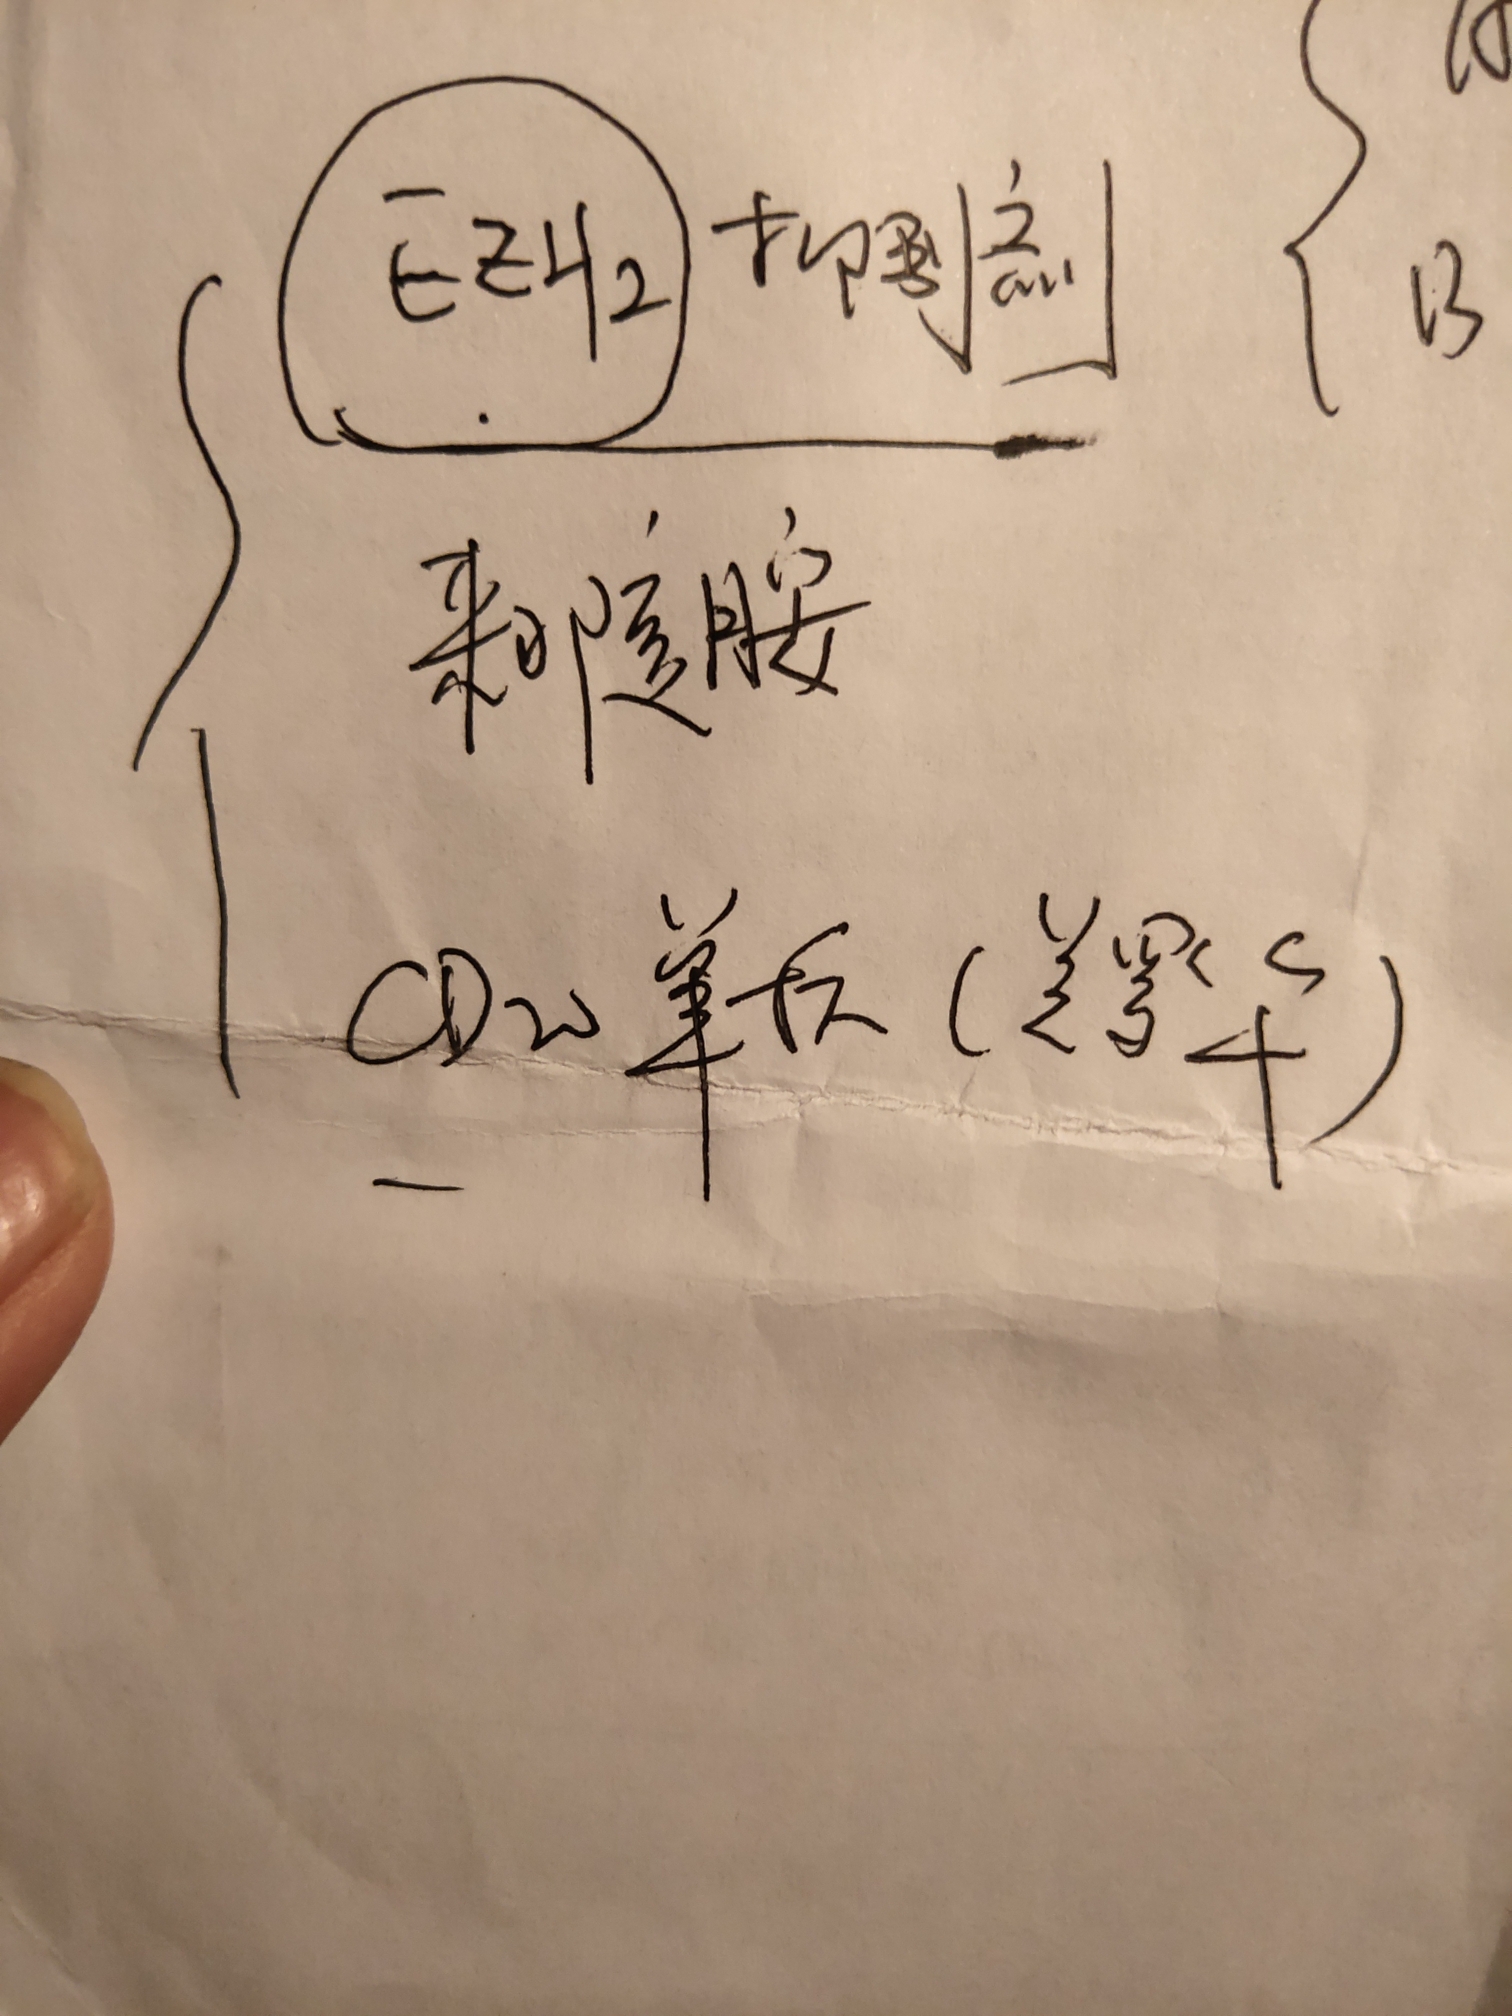 EZH2 抑制剂
来那度胺
CD20 单抗 (美罗华)
B